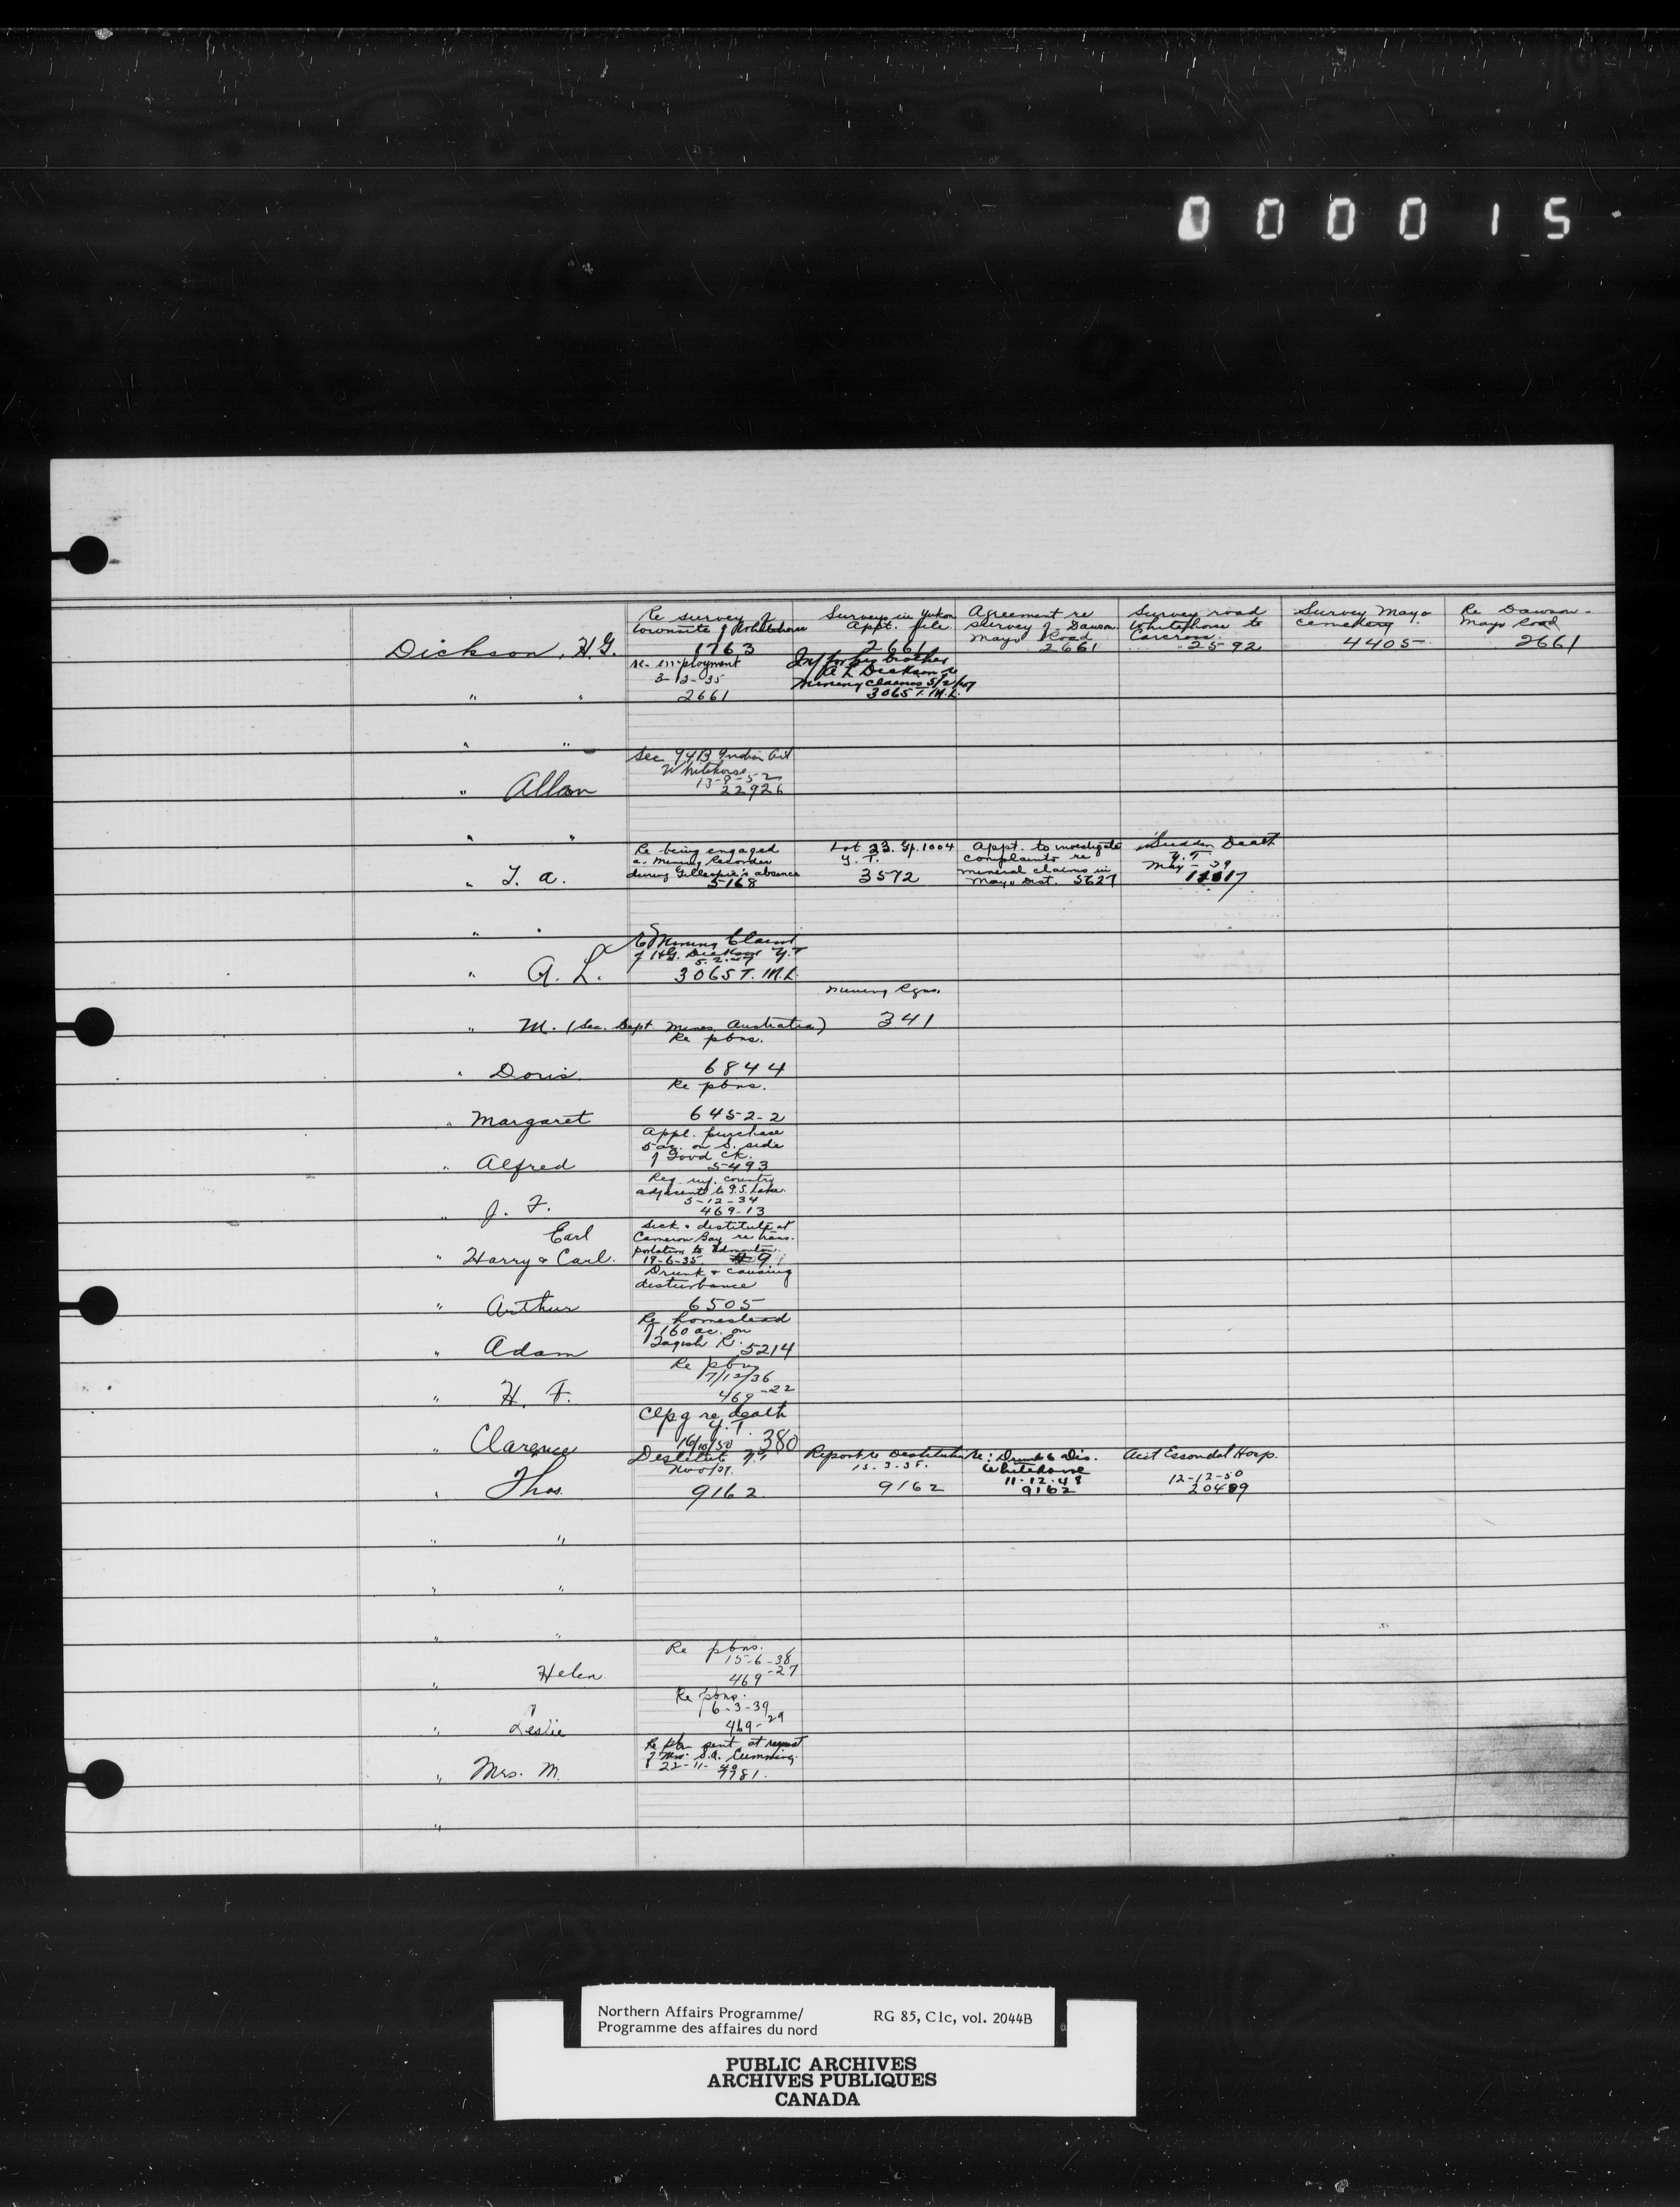 000015
Dickson, H.G.
Re survey of
townsite of Whitehorse
1763
Surveys in Yukon
Appt. file
2661
Agreement re
survey of Dawson
Mayo Road
2661
Survey road
Whitehorse to
Carcross
2592
Survey Mayo
cemetery
4405
Re Dawson-
Mayo Road
2661
" "
re-employment
3-12-35
2661
brother
A L Dickson
mining claims 5/2/
3065 T. M.L.
" "
" Allan
Sec 94B Indian Act
Whitehorse
13-9-52
22926
" "
" T. A.
Re being engaged
as Mining Recorder
during Gillespie's absence
5168
Lot 23. Gp. 1004
Y. T.
3572
Appt. to investigate
complaints re
mineral claims in
Mayo Dist. 5627
Sudden Death
Y.T.
May - 29
" "
" A. L.
Re Mining Claims
of H.G. Dickson Y.T
3065 T. M.L.
" M. (Sec. Dept. Mines, Australia)
Mining Regns.
341
" Doris
Re pbns.
6844
" Margaret
Re pbns.
6452-2
" Alfred
Appl. purchase
5 ac. on S. side
of Good Ck.
5493
" J. F.
Req. inf. country
adjacent to G.S. Lake.
5-12-34
469-13
Earl
" Harry & Carl.
Sick & destitute at
Cameron Bay re trans-
portation to Edmonton.
19-6-35.
" Arthur
Drunk & causing
disturbance
6505
" Adam
Re homestead
of 160 ac. on
Tagish R.
5214
" H. F.
Re pbns
7/12/36
469-22
" Clarence
Clpg re death
Y.T.
16/10/50 380
" Thos.
Destitute Y.T
9162
Report re Destitute
15.3.35.
9162
Re: Drunk & Dis.
Whitehorse
11-12-48
9162
Acct Essondal Hosp.
12-12-50
20489
" "
" "
" "
" Helen
Re pbns.
15-6-38
469-27
" Leslie
Re pbns.
6-3-39
469-29
" Mrs. M.
Re pbn sent at request
of Mrs. S.A. Cumming.
22-11-40
7781.
"
Northern Affairs Programme/ RG 85, C1c, vol. 2044B
Programme des affaires du nord
PUBLIC ARCHIVES
ARCHIVES PUBLIQUES
CANADA